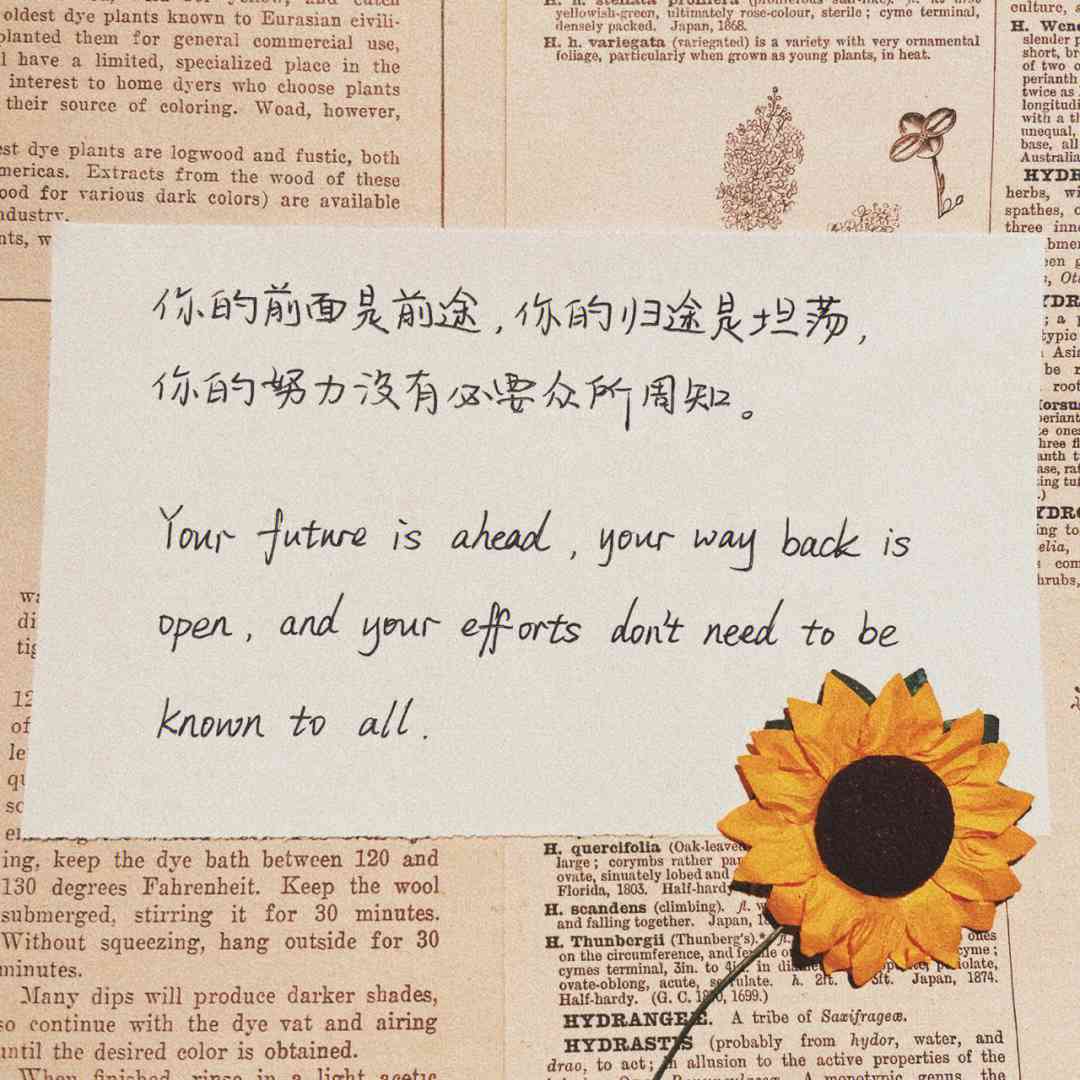 oldest dye plants known to Eurasian civili-
planted them for general commercial use,
have a limited, specialized place in the
interest to home dyers who choose plants
their source of coloring. Woad, however,
dye plants are logwood and fustic, both
Extracts from the wood of these
for various dark colors) are available
yellowish-green, ultimately rose-colour, sterile; cyme terminal,
densely packed. Japan, 1868.
H. h. variegata (variegated) is a variety with very ornamental
foliage, particularly when grown as young plants, in heat.
culture,
H.
slender
short,
of two
perianth
twice as
with a
unequal,
base, all
Australia
herbs,
spathes,
three
你的前面是前途,你的归途是坦荡,
你的努力没有必要众所周知。
Your future is ahead, your way back is
open, and your efforts don't need to be
known to all.
ing, keep the dye bath between 120 and
130 degrees Fahrenheit. Keep the wool
submerged, stirring it for 30 minutes.
Without squeezing, hang outside for 30
minutes.
Many dips will produce darker shades,
so continue with the dye vat and airing
until the desired color is obtained.
When finished, rinse in a light acetic
H. quercifolia (Oak-leaved
large; corymbs rather
ovate, sinuately lobed and
Florida, 1803. Half-hardy
H. scandens (climbing). fl.
and falling together. Japan,
H. Thunbergii (Thunberg's).* fl.
on the circumference, and
cymes terminal, 3in. to 4in. in
ovate-oblong, acute,
Japan, 1874.
Half-hardy. (G. C. 1699.)
HYDRANGEÆ. A tribe of Saxifrageæ.
HYDRASTIS (probably from hydor, water, and
drao, to act; in allusion to the active properties of the